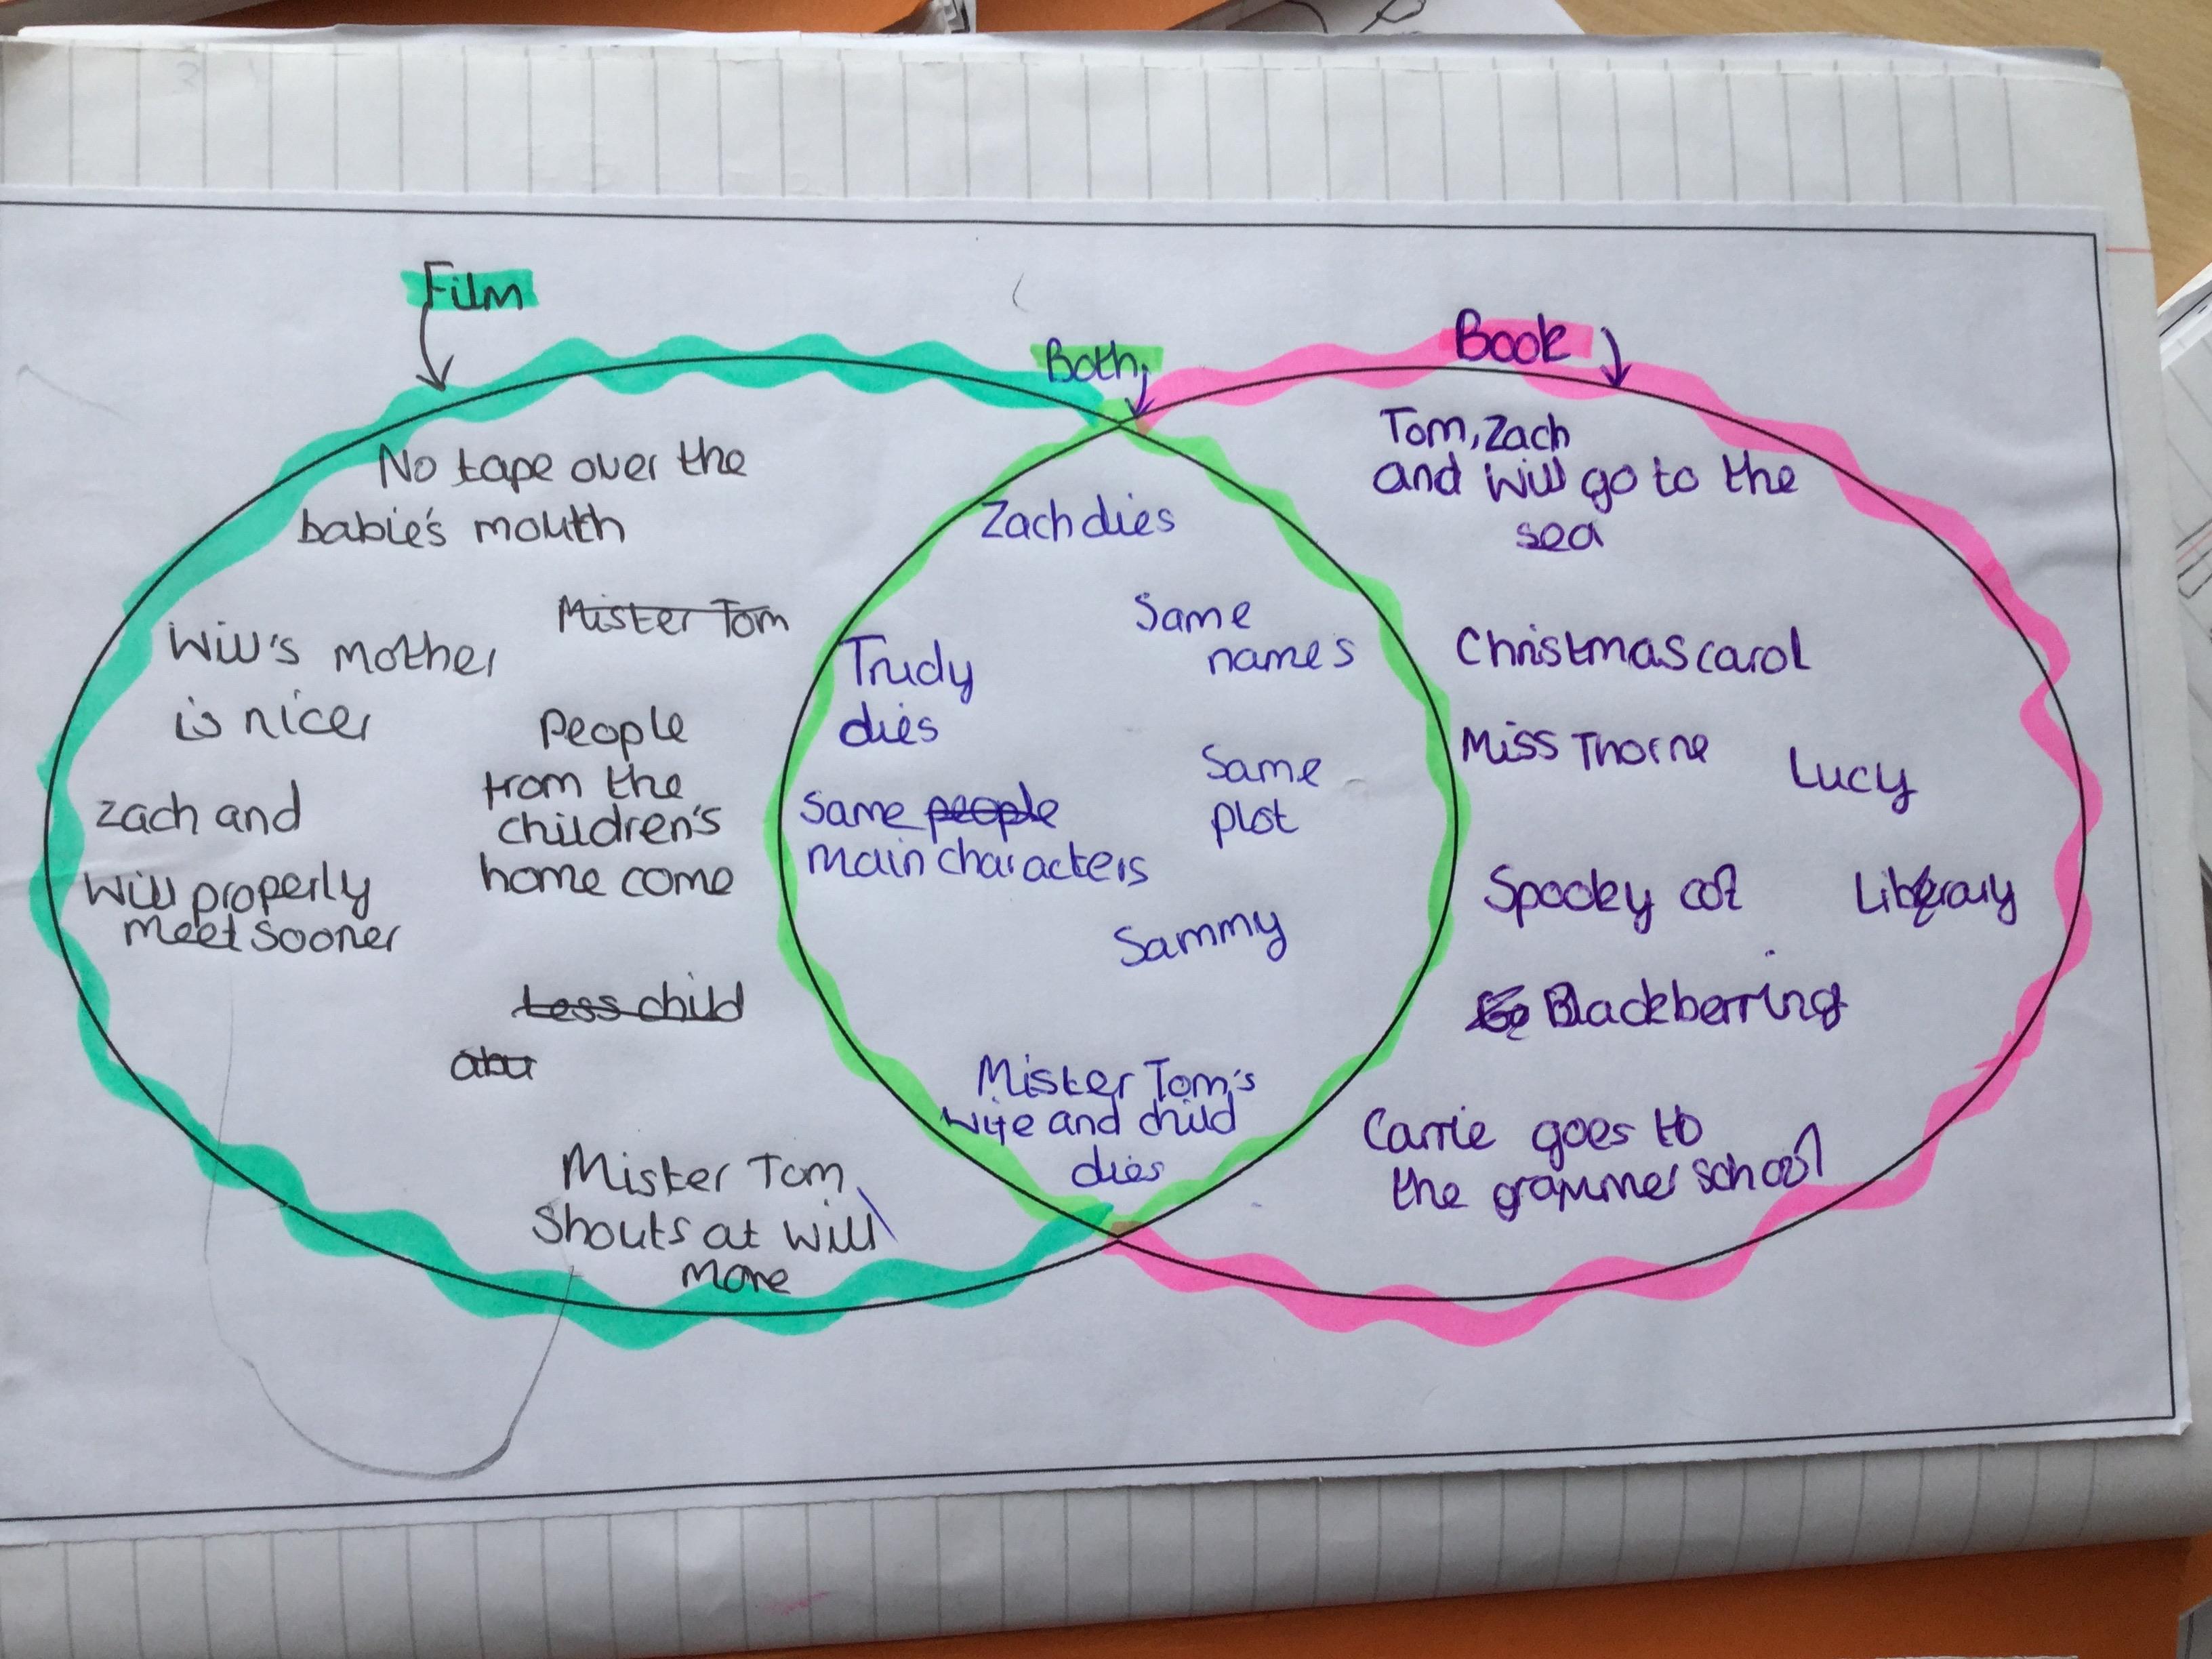 Film
No tape over the
babie's mouth
Mister Tom
Will's mother
is nicer
People
from the
children's
home come
Zach and
Will properly
meet sooner
Less child
abu
Mister Tom
Shouts at Will
more
Both
Zach dies
Same
names
Trudy
dies
Same people
main characters
Same
plot
Sammy
Mister Tom's
wife and child
dies
Book
Tom, Zach
and Will go to the
sea
Christmas carol
Miss Thorne
Lucy
Spooky cot
Library
Blackberring
Carrie goes to
the grammer school